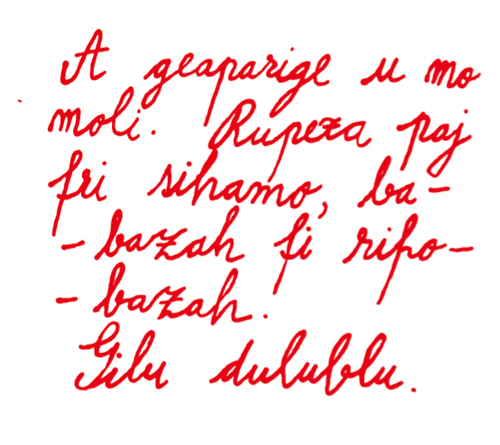 A geaparige u mo
moli. Rupeza paj
fri sihamo, ba-
-bazah fi ripo-
-bazah.
Gilu dulublu.